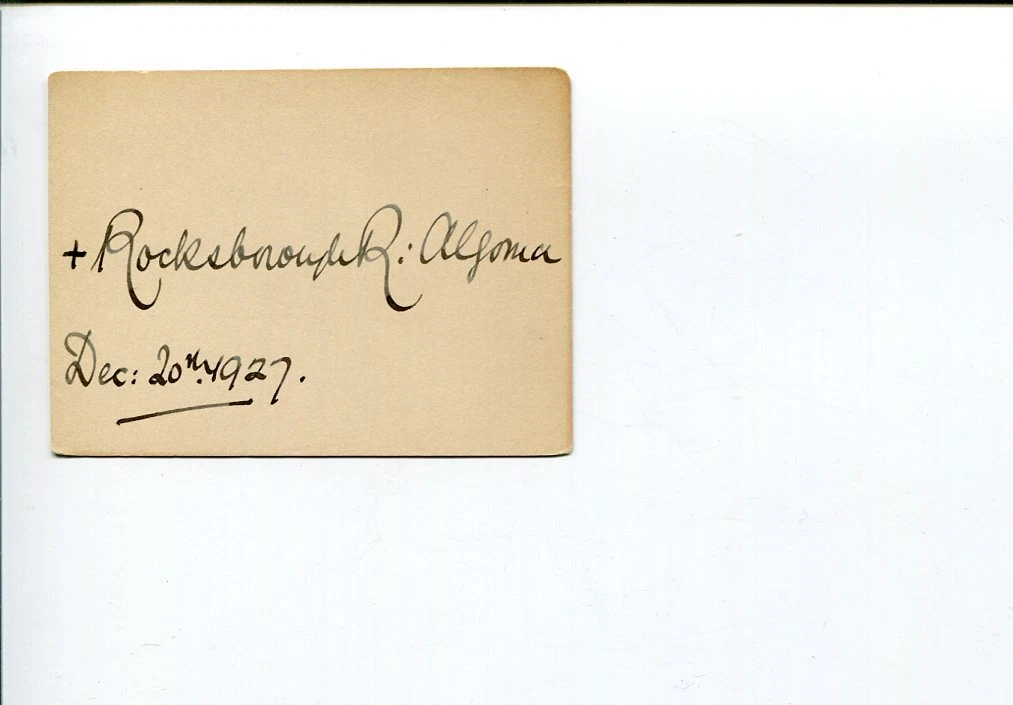 + Rocksborough R: Algoma
Dec: 20th. 1927.